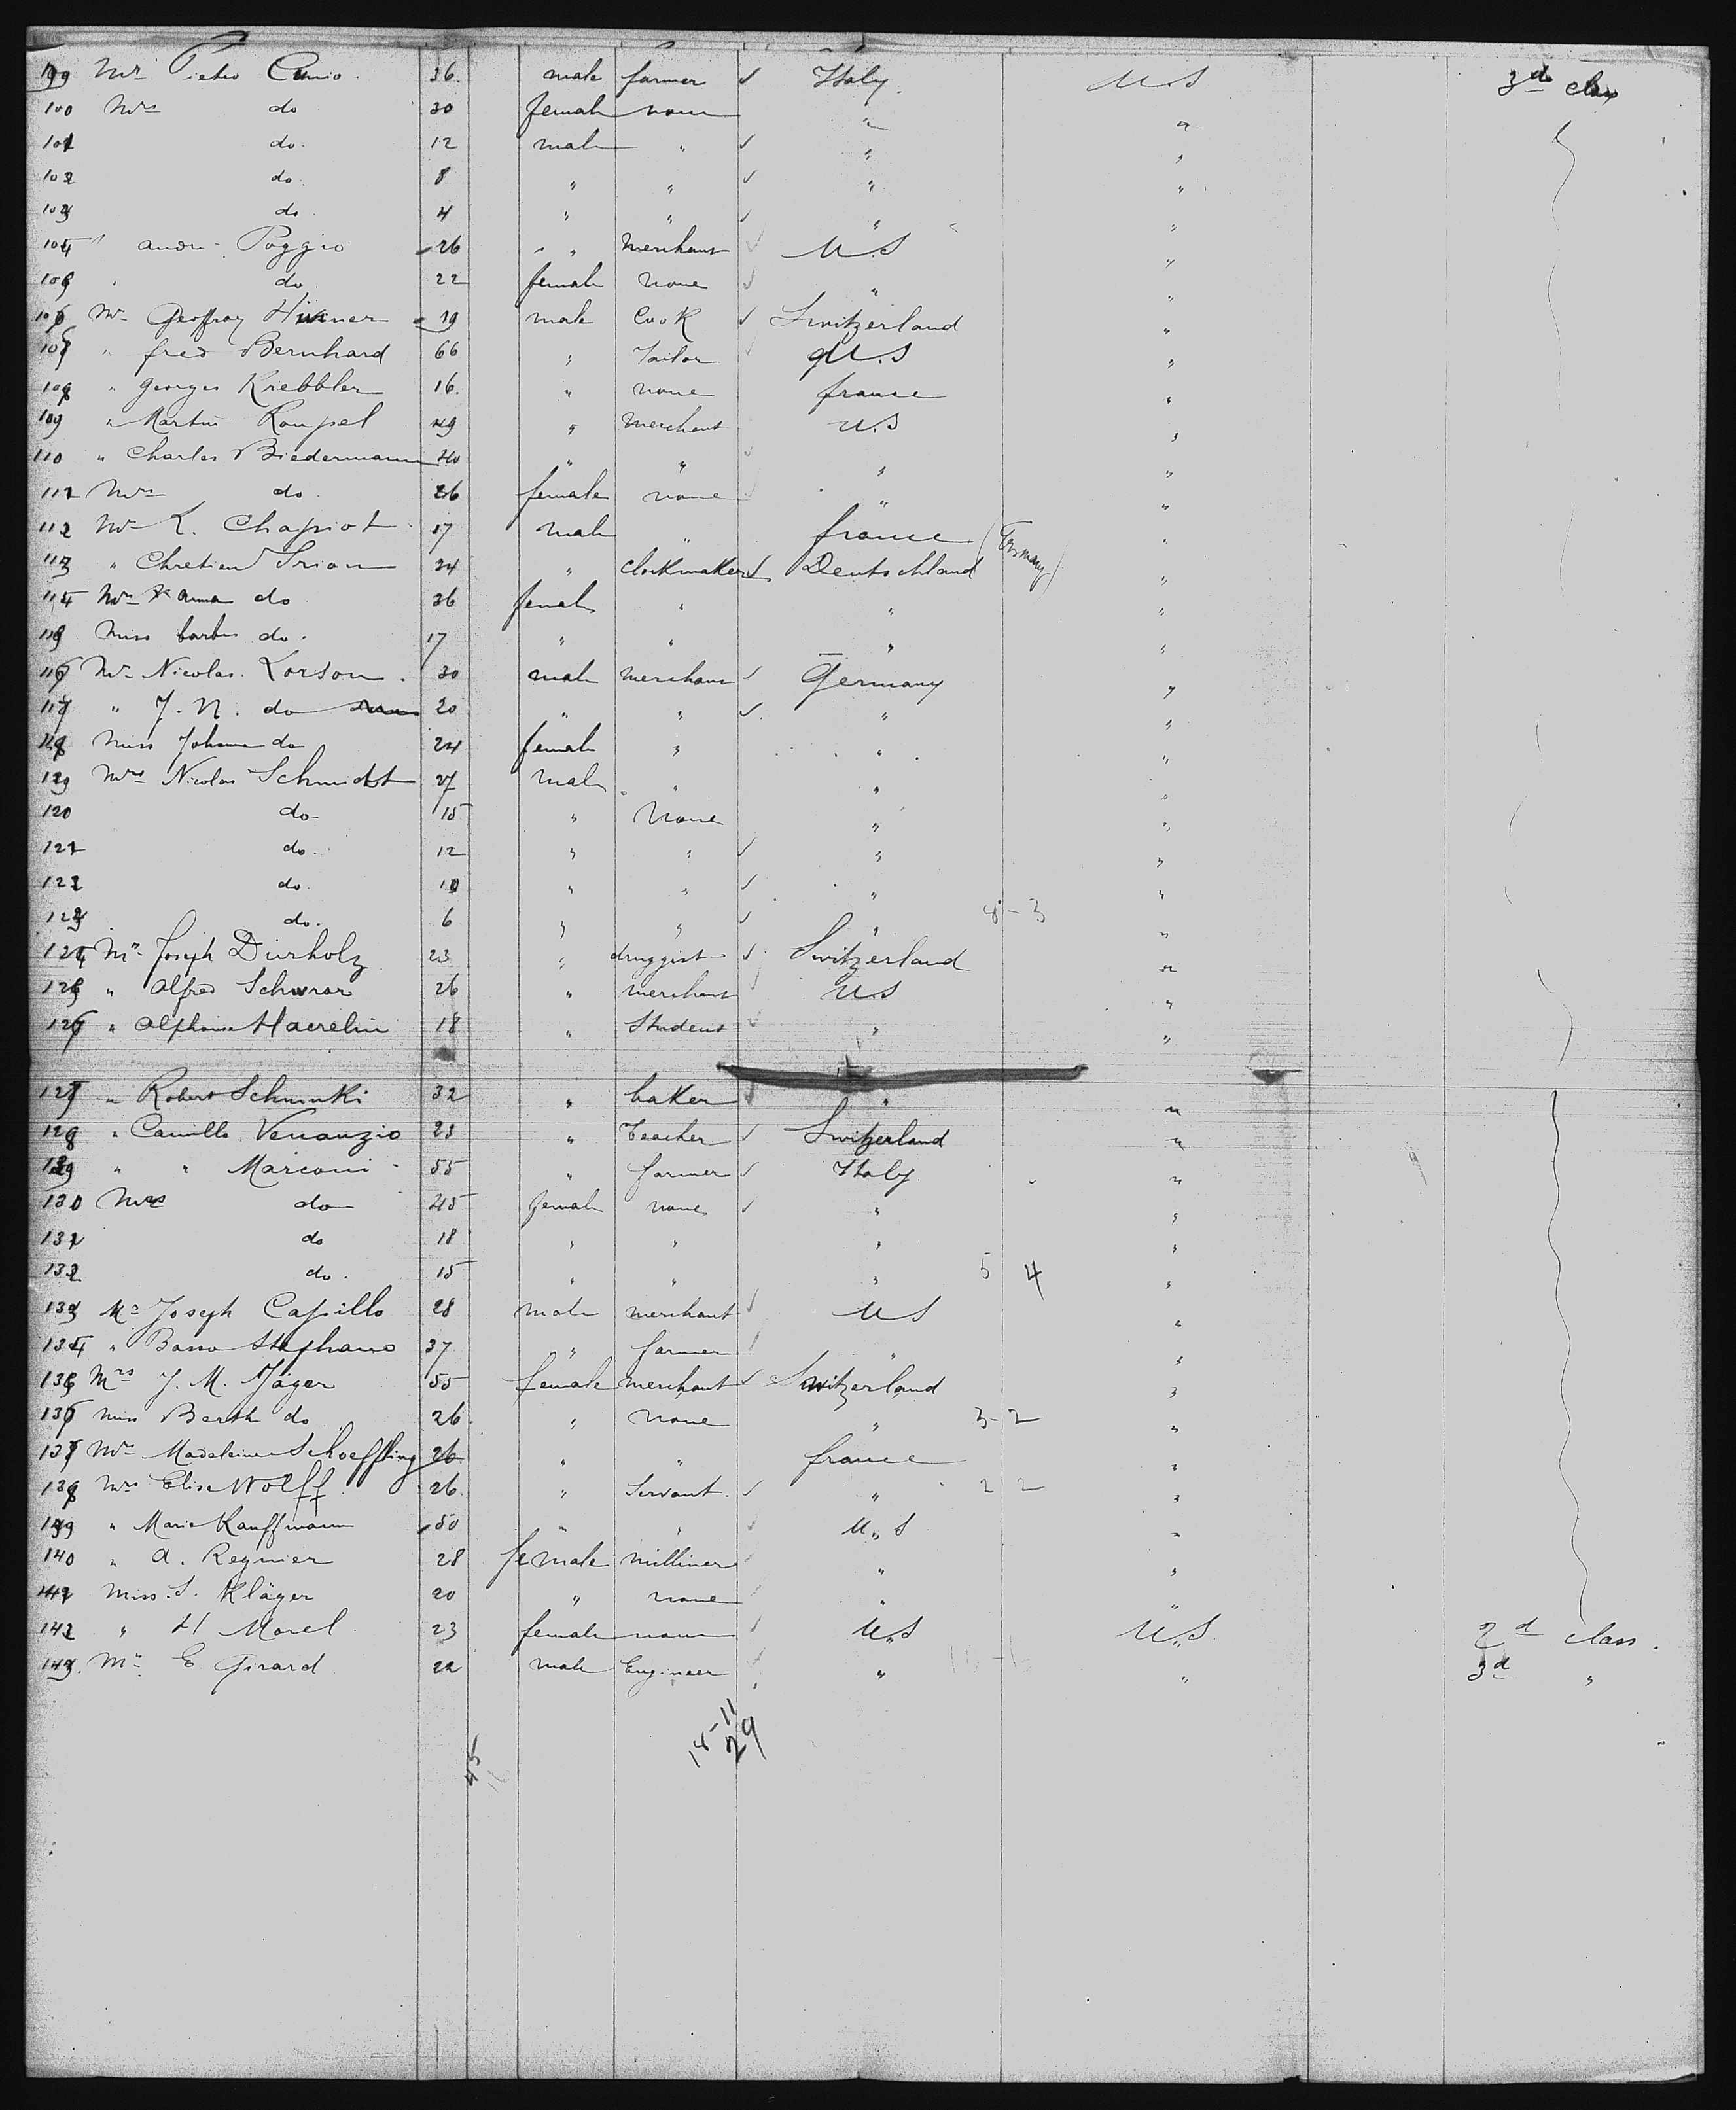 99 Mr Pietro Cunio. 36. male farmer ✓ Italy. U.S 3d class
100 Mrs do 30 female none " "
101 do. 12 male " ✓ " "
102 do. 8 " " ✓ " "
103 do 4 " " ✓ " "
104 " andre Poggio 26 " merchant ✓ U.S "
105 " do 22 female none ✓ " "
106 Mr Geoffroy 19 male Cook ✓ Switzerland "
107 " fred Bernhard 66 " Tailor ✓ U.S "
108 " georges Krebbler 16. " none france "
109 " Martin Rompel 49 " merchant U.S "
110 " Charles Biedermann 40 " " ✓ " "
111 Mrs do. 36 female none " "
112 Mr L. Chapiot 17 male " france "
113 " Chretien Trion 24 " clockmaker ✓ Deutschland (Germany) "
114 Mrs anna do 26 female " " "
115 Miss do. 17 " " " "
116 Mr Nicolas Lorson. 30 male merchant ✓ Germany "
117 " J. N. do 20 " " ✓ " "
118 Miss Johanna do 24 female " " "
119 Mr Nicolas Schmidt 27 male " " "
120 do 15 " None " "
121 do. 12 " " ✓ " "
122 do. 10 " " ✓ " "
123 do. 6 " " ✓ " 8-3 "
124 Mr Joseph Durholz 23 " druggist ✓ Switzerland "
125 " Alfred Schwar 26 " merchant ✓ U.S "
126 " Alphonse Haerelin 18 " Student ✓ " "
127 " Robert Schmuki 32 " baker ✓ " "
128 " Camille Venanzio 23 " Teacher ✓ Switzerland "
129 " " Marconi 55 " farmer ✓ Italy "
130 Mrs do 45 female none ✓ " "
131 do 18 " " " "
132 do. 15 " " " 5 4 "
133 Mr Joseph Capillo 28 male merchant ✓ U S "
134 " Basso Stephano 37 " farmer ✓ " "
135 Mrs J. M. Jäger 55 female merchant ✓ Switzerland "
136 Miss Berth do 26. " none " 3-2 "
137 Mrs Madeleine Schoeffling 26 " " france "
138 Mrs Elise Wolff 26. " Servant. ✓ " 2 2 "
139 " Marie Kauffmann 50 " " ✓ U"S "
140 " A. Regnier 28 female milliner ✓ " "
141 Miss. S. Kläger 20 " none " "
142 " H Morel 23 female none ✓ U"S U"S. 2d class.
143. Mr E Girard 22 male Engineer ✓ " " 3d "
18-11
29
45